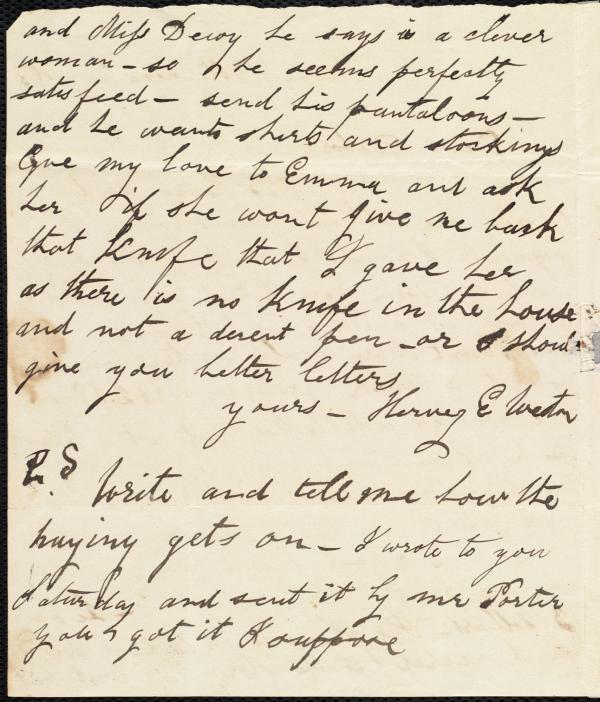 and Miss Dewy he says is a clever
woman - so he seems perfectly
satisfeed - send his pantaloons -
and he wants shirts and stockings
Give my love to Emma and ask
her if she wont give me back
that Knife that I gave her
as there is no knife in the house
and not a decent pen - or I should
give you better letters
yours - Hervey E Weston
P. S
Write and tell me how the
haying gets on - I wrote to you
Saturday and sent it by mr Porter
you got it I suppose